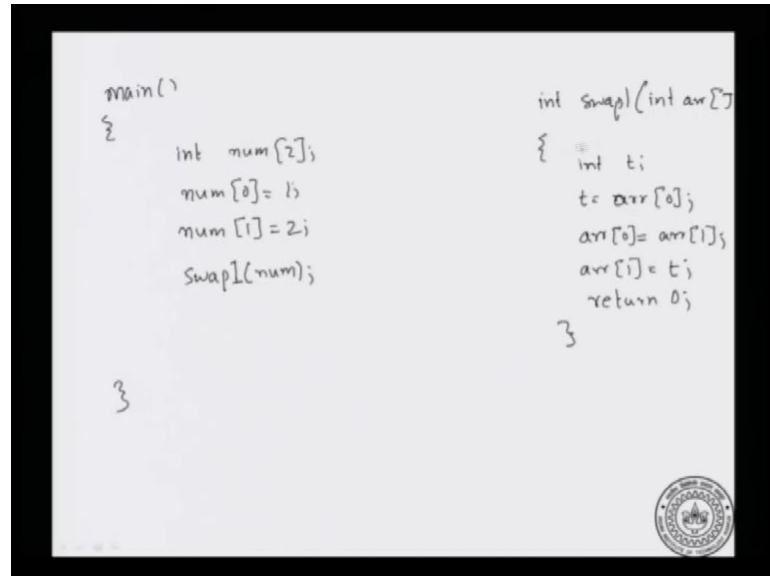 main()
{
int num[2];
num[0]= 1;
num[1]=2;
swap1(num);
}
int swap1(int arr[]
{
int t;
t= arr[0];
arr[0]= arr[1];
arr[1]= t;
return 0;
}